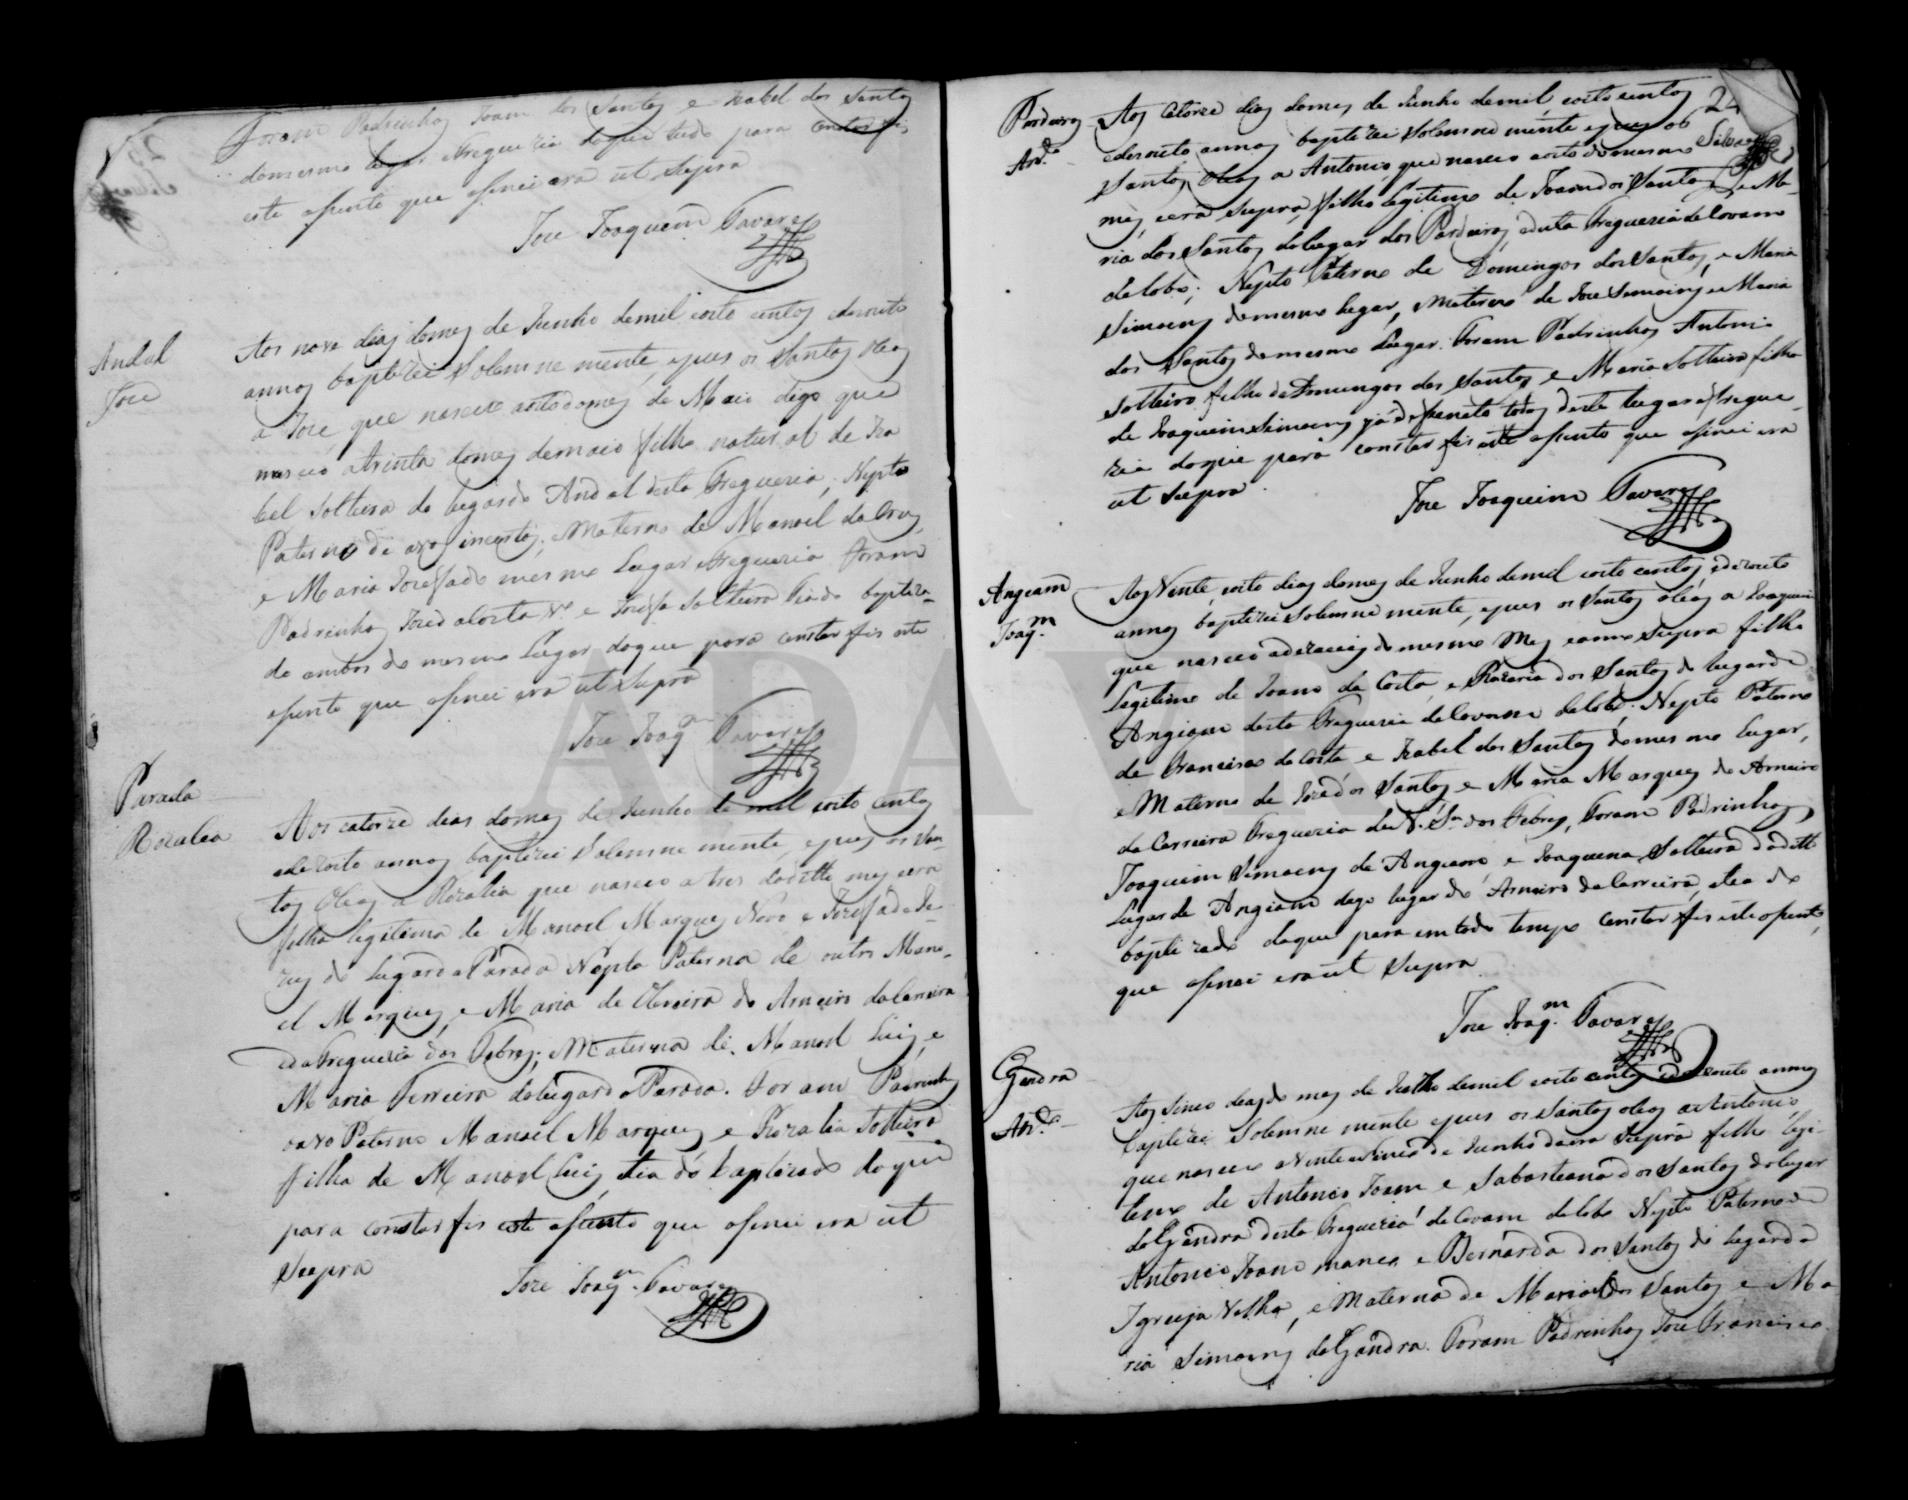 Foram Padrinhos Joam dos Santos e Izabel dos Santos
domesmo lugar efreguezia doque tudo para constar fis
este asento que asinei era ut supra
Joze Joaquim Tavares
Andal
Joze
Aos nove dias domes de Junho demil oito centos edezouto
annos baptizei Solemne mente, epus os Santos oleos
a Joze que nasceo aoito domes de Maio digo que
nasceo atrinta domes demaio filho natural de Iza
bel Solteira do lugardo Andal desta Freguezia, Nepto
Paterno de avos incertos, Materno de Manoel da Cruz,
e Maria Jozefa do mesmo Lugar efreguezia Foram
Padrinhos Joze da Costa e Jozefa Solteira Tia do baptiza-
do ambos do mesmo Lugar doque para constar fis este
asento que asinei era ut supra
Joze Joaqm Tavares
Parada
Rozalea
Aos catorze dias domes de Junho de mil oito centos
edezoito annos baptizei Solemne mente, epus os San-
tos Oleos a Rozalia que nasceo a tres dodítto mes eera
filha legitima de Manoel Marques Novo e Jozefa de Je-
zus do lugar da Parada Nepta Paterna de outro Mano-
el Marques, e Maria de Oliveira do Arneiro da Carreira
eda Freguezia dos Febres; Materna de Manoel Luis, e
Maria Ferreira dolugar da Parada. Foram Padrinhos
oavo Paterno Manoel Marques e Rozalia Solteira
filha de Manoel Luis, tia do baptizado do que
para constar fis este asento que asinei era ut
Supra
Joze Joaqm Tavares
24
Silva
Pardeiros
Anto
Aos catorze dias domes de Junho demil oito centos
edezouto annos baptizei Solemne mente epus os
Santos Oleos a Antonio, que nasceo aoito domesmo
mes, eera Supra, filho legitimo de Joam dos Santos, e Ma-
ria dos Santos dolugar dos Pardeiros, desta Freguezia de Covam
delobo; Nepto Paterno de Domingos dos Santos, e Maria
Simoens domesmo lugar, Materno de Joze Simoens e Maria
dos Santos domesmo Lugar. Foram Padrinhos Antonio
Solteiro filho de Domingos dos Santos e Maria Solteira filha
de Joaquim Simoens já defunto todos deste lugar efregue-
zia doque para constar fis este asento que asinei era
ut supra.
Joze Joaquim Tavares
Angeam
Joaqm
Aos Vente oito dias domes de Junho demil oito centos, edezouto
annos baptizei Solemne mente, epus os Santos oleos a Joaquim
que nasceo adezaseis domesmo Mes eanno Supra filho
Legitimo de Joam da Costa, e Rozaria dos Santos do lugar de
Angiam desta Freguezia de Covam delobo. Nepto Paterno
de Francisco da Costa e Izabel dos Santos domesmo lugar,
e Materno de Joze dos Santos e Maria Marques do Arneiro
da Carreira Freguezia de N. Sra dos Febres, Foram Padrinhos
Joaquim Simoens de Angeam, e Joaquina Solteira do ditto
Lugar de Angiam digo lugar do Arneiro da Carreira, etea do
baptizado doque para emtodo tempo constar fis este asento,
que asinei era ut Supra
Joze Joaqm Tavares
Gandra
Anto
Aos Sinco dias do mes de Julho demil oito centos edezouto annos
baptizei Solemne mente epus os Santos oleos a Antonio,
que nasceo a Vente e Sinco de Junho da era Supra filho legi-
timo de Antonio Joam e Sabasteana dos Santos do lugar
da Gandra desta Freguezia de Covam delobo Nepto Paterno de
Antonio Joam manco e Bernarda dos Santos do lugar da
Igreija Velha, e Materno de Manoel dos Santos e Ma
ria Simoens da Gandra. Foram Padrinhos Joze Francisco